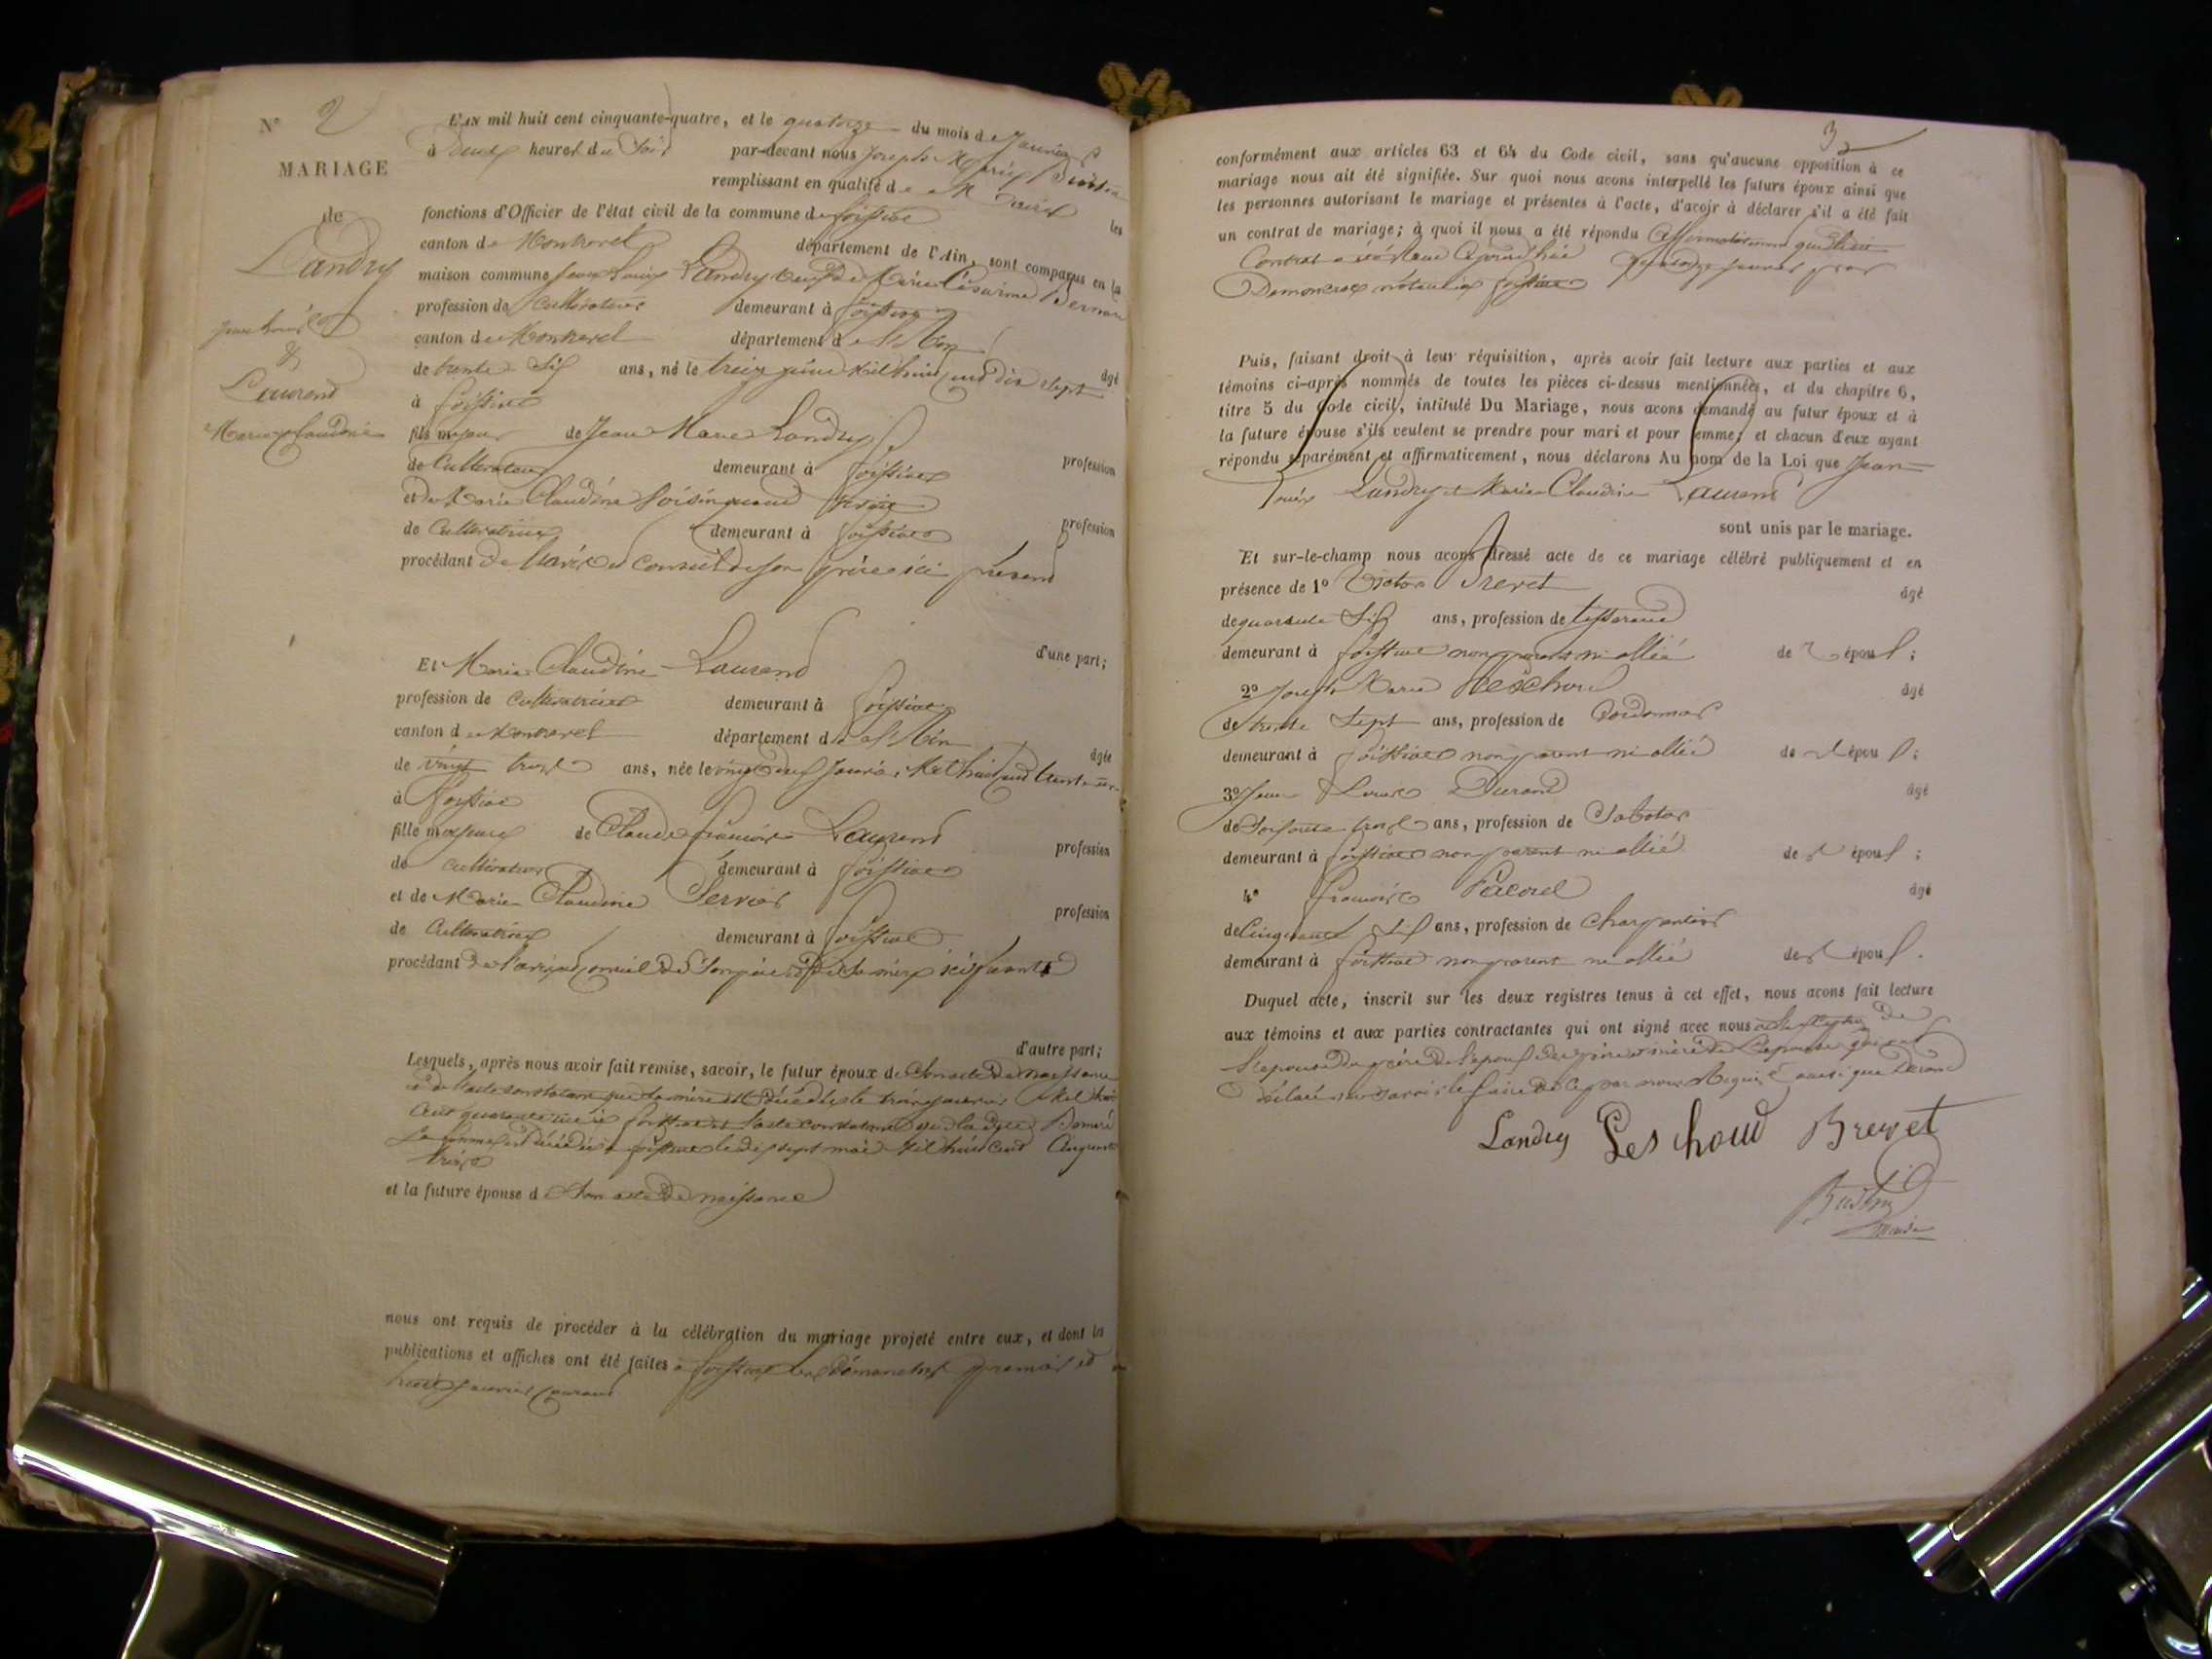 N° 2
MARIAGE
de
Landry
Jean Louis
&
Laurend
Marie Claudine
L'AN mil huit cent cinquante-quatre, et le quatorze du mois de Janvier
à Deux heures du Soir par-devant nous Joseph Marie
remplissant en qualité de Maire les
fonctions d'Officier de l'état civil de la commune de foissiat
canton de Montrevel département de l'Ain, sont comparus en la
maison commune Jean Louis Landry veuf de Marie
profession de Cultivateur demeurant à foissiat
canton de Montrevel département de l'Ain âgé
de trente Six ans, né le treize juin Mil huit cent dix Sept
à foissiat
fils majeur de Jean Marie Landry profession
de Cultivateur demeurant à foissiat
et de Marie Claudine
de Cultivatrice demeurant à foissiat profession
procédant de l'avis et conseil de son père ici présent
d'une part;
Et Marie Claudine Laurend
profession de cultivatrice demeurant à foissiat
canton de Montrevel département de l'Ain âgée
de vingt trois ans, née le vingt Janvier Mil huit cent trente un
à foissiat
fille majeure de Claude françois Laurend profession
de cultivateur demeurant à foissiat
et de Marie Claudine Servier profession
de Cultivatrice demeurant à foissiat
procédant de l'avis et conseil de Son père et de Sa mère ici présents
d'autre part;
Lesquels, après nous avoir fait remise, savoir, le futur époux de Son acte de naissance
et de l'acte constatant que Sa mère est décédée le janvier Mil huit
Cent quarante à foissiat et l'acte constatant que la dite
Sa femme est décédée à foissiat le dix sept mai Mil huit cent Cinquante
trois
et la future épouse de Son acte de naissance
nous ont requis de procéder à la célébration du mariage projeté entre eux, et dont les
publications et affiches ont été faites à foissiat les dimanches premier et
huit janvier courant
3
conformément aux articles 63 et 64 du Code civil, sans qu'aucune opposition à ce
mariage nous ait été signifiée. Sur quoi nous avons interpellé les futurs époux ainsi que
les personnes autorisant le mariage et présentes à l'acte, d'avoir à déclarer s'il a été fait
un contrat de mariage; à quoi il nous a été répondu affirmativement que le dit
Contrat a été Reçu quatorze janvier par
notaire à foissiat
Puis, faisant droit à leur réquisition, après avoir fait lecture aux parties et aux
témoins ci-après nommés de toutes les pièces ci-dessus mentionnées, et du chapitre 6,
titre 5 du Code civil, intitulé Du Mariage, nous avons demandé au futur époux et à
la future épouse s'ils veulent se prendre pour mari et pour femme; et chacun d'eux ayant
répondu séparément et affirmativement, nous déclarons Au nom de la Loi que Jean
Louis Landry et Marie Claudine Laurend
sont unis par le mariage.
Et sur-le-champ nous avons dressé acte de ce mariage célébré publiquement et en
présence de 1° Victor Brevet âgé
de quarante Six ans, profession de tisserand
demeurant à foissiat non parent ni allié de l'époux;
2° Joseph Marie Peschoud âgé
de trente Sept ans, profession de Cordonnier
demeurant à foissiat non parent ni allié de l'époux;
3° Jean Louis Durand âgé
de Soixante trois ans, profession de Sabotier
demeurant à foissiat non parent ni allié de l'époux;
4° françois Pacorel âgé
de Cinquante Six ans, profession de Charpentier
demeurant à foissiat non parent ni allié de l'époux.
Duquel acte, inscrit sur les deux registres tenus à cet effet, nous avons fait lecture
aux témoins et aux parties contractantes qui ont signé avec nous à l'exception de
l'épouse du père de l'époux des père et mère de l'épouse qui ont
déclaré ne savoir le faire de ce par nous Requis ainsi que Durand
Landry Peschoud Brevet
maire